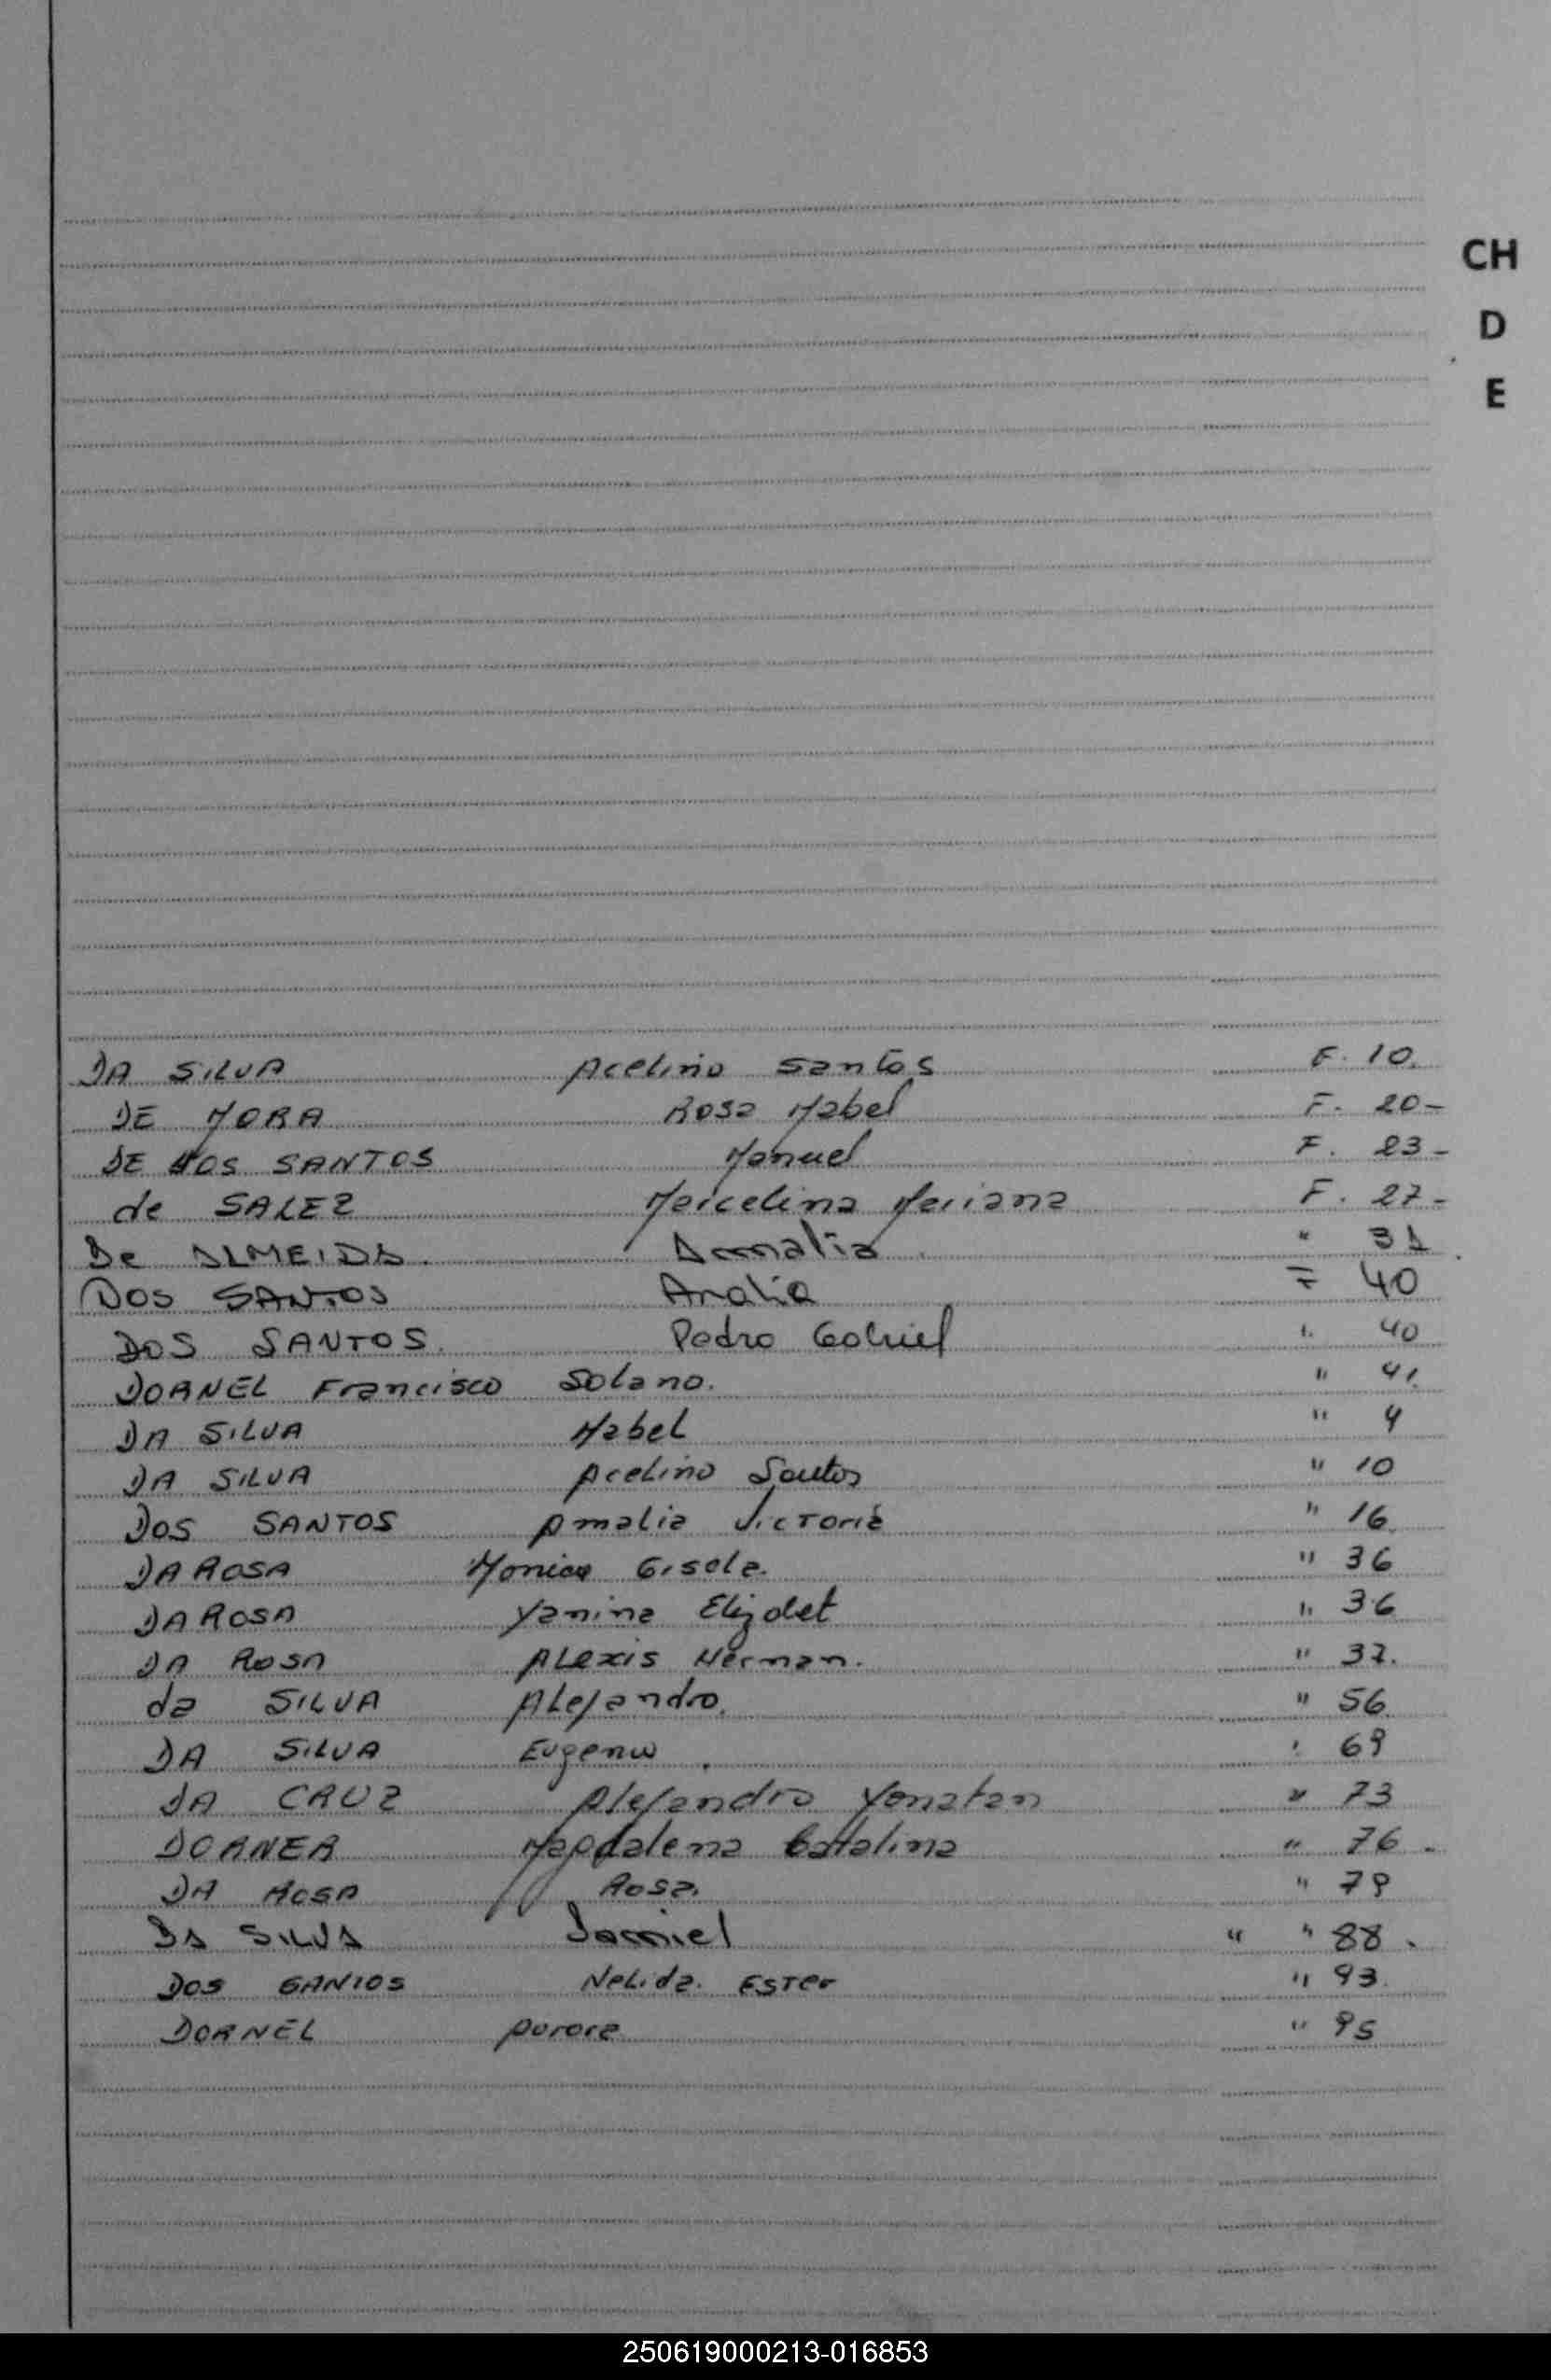 CH
D
E
DA SILVA Acelino Santos F. 10.
DE MORA Rosa Mabel F. 20-
DE DOS SANTOS Manuel F. 23-
de SALEZ Marcelina Mariana F. 27-
De ALMEIDA. Amalia " 31
DOS SANTOS Analia = 40
DOS SANTOS. Pedro Gabriel " 40
DORNEL Francisco Solano. " 41.
DA SILVA Mabel " 4
DA SILVA Acelino Santos " 10
DOS SANTOS Amalia Victoria " 16.
DA ROSA Monica Gisela. " 36
DA ROSA Yanina Elizabet " 36
DA ROSA ALexis Hernan. " 37.
da SILVA ALejandro. " 56.
DA SILVA Eugenio " 69
DA CRUZ Alejandro Yonatan " 73
DORNER Magdalena Catalina " 76.
DA ROSA Rosa. " 79
DA SILVA Daniel " " 88.
DOS SANTOS NeLida. ESTer " 93.
DORNEL Aurora " 95
250619000213-016853